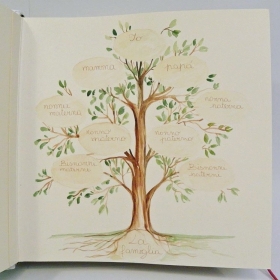 Io
mamma
papà
nonna
materna
nonna
paterna
nonno
materno
nonno
paterno
Bisnonni
materni
Bisnonni
paterni
La
famiglia